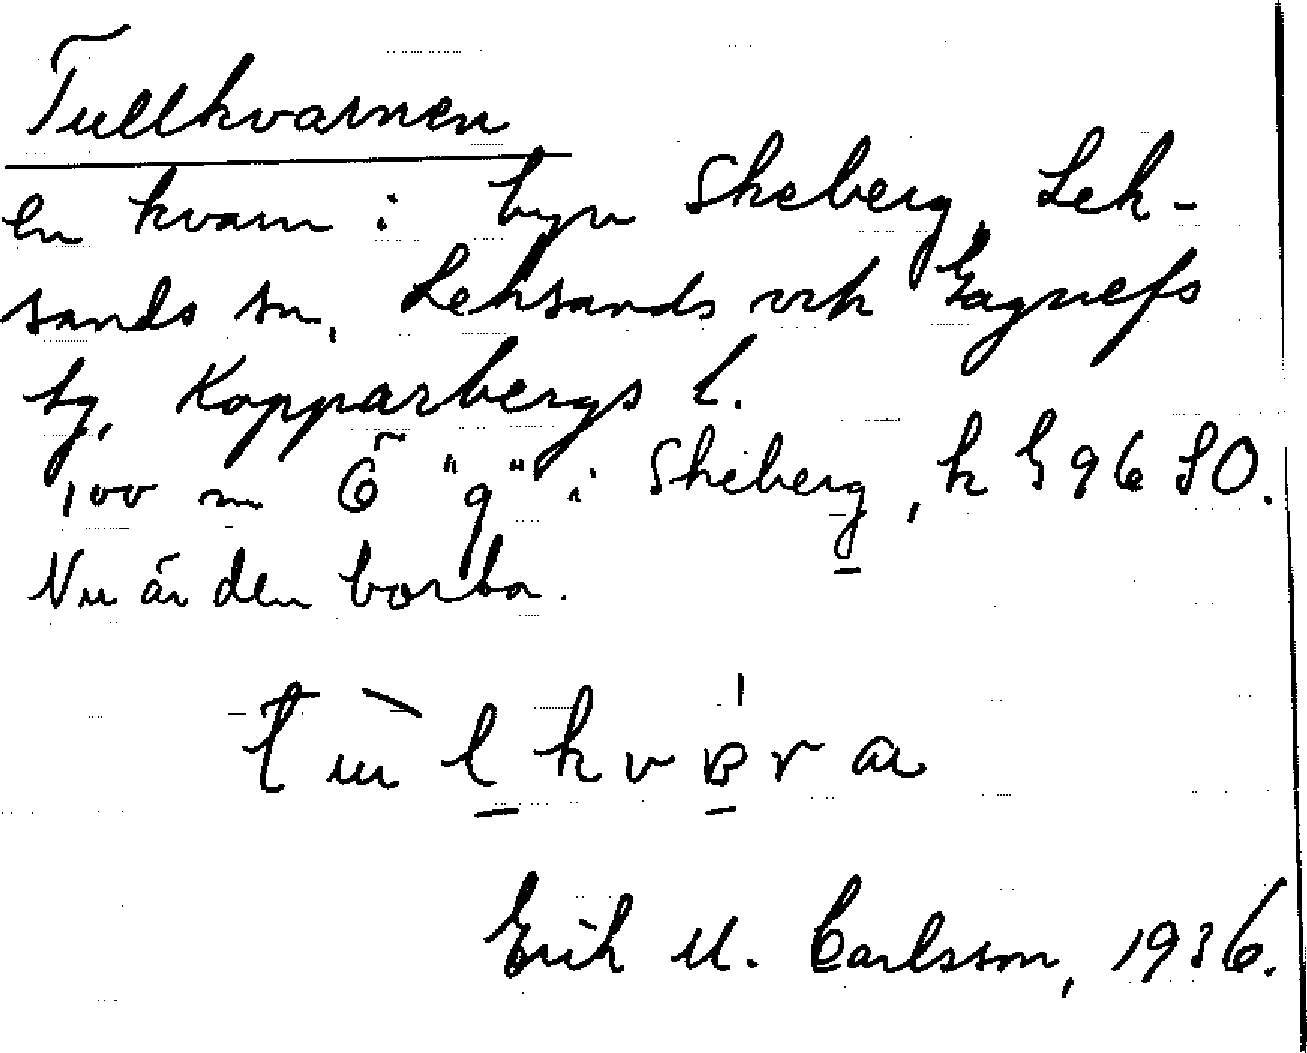 Tullkvarnen
en kvarn i byn Skeberg, Lek-
sands sn, Leksands och Gagnefs
tg, Kopparbergs l.
100 m Ö "g" i Skeberg, k G 96 SO.
Nu är den borta.
Erik M. Carlsson, 1936.